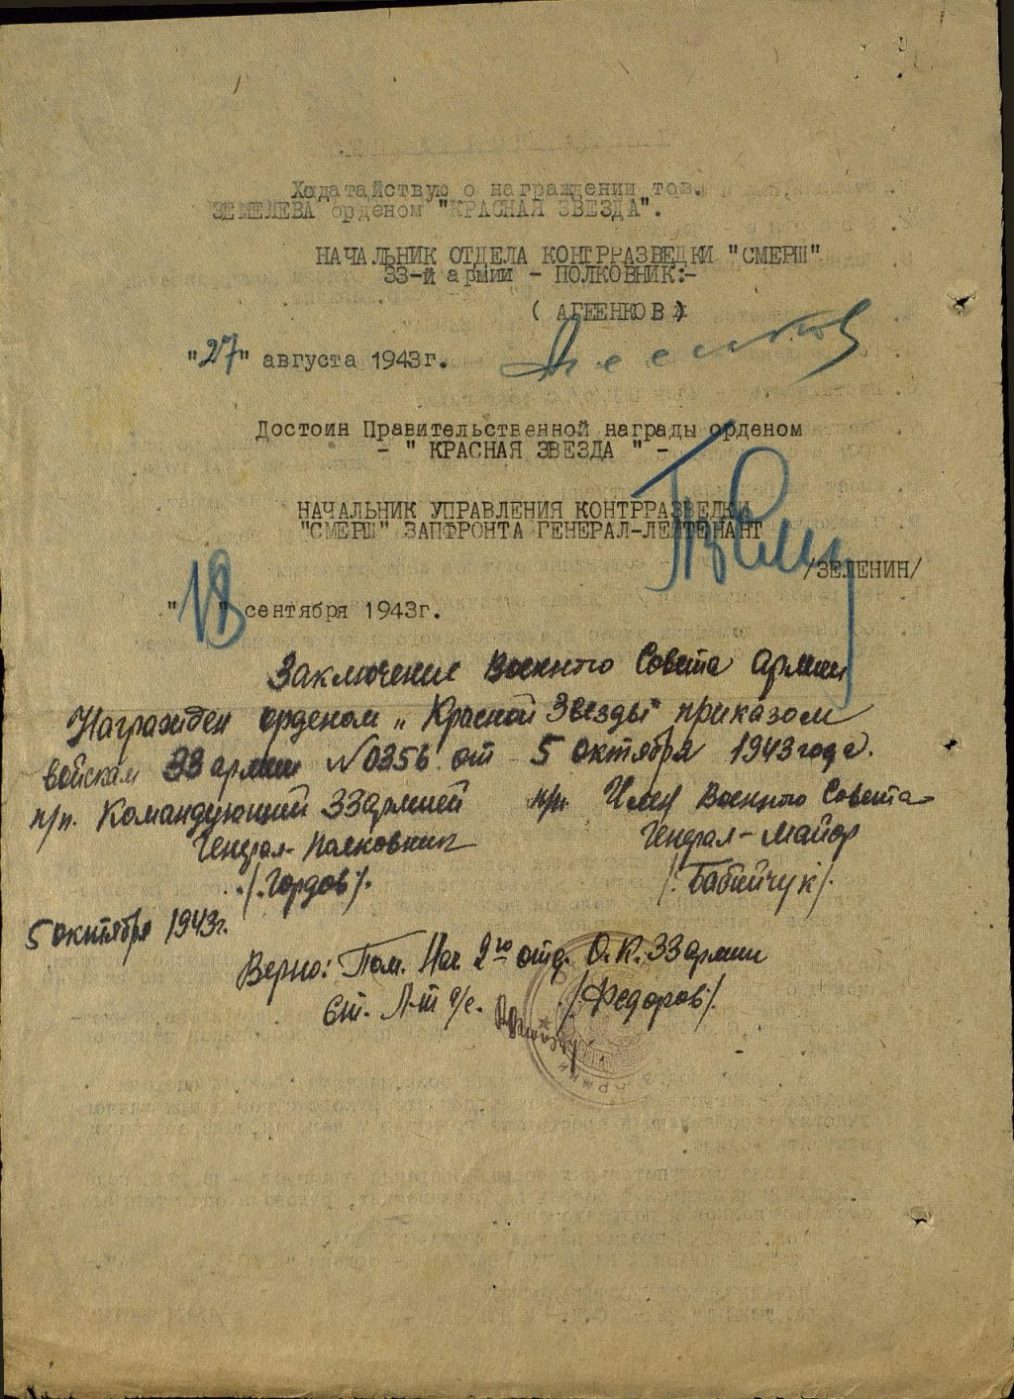 Ходатайствую о награждении тов.
ЗЕМЕЛЕВА орденом "КРАСНАЯ ЗВЕЗДА".
НАЧАЛЬНИК ОТДЕЛА КОНТРРАЗВЕДКИ "СМЕРШ"
33-й армии - ПОЛКОВНИК:-
( АГЕЕНКОВ )
"27" августа 1943г.
Достоин Правительственной награды орденом
- " КРАСНАЯ ЗВЕЗДА " -
НАЧАЛЬНИК УПРАВЛЕНИЯ КОНТРРАЗВЕДКИ
"СМЕРШ" ЗАПФРОНТА ГЕНЕРАЛ-ЛЕЙТЕНАНТ
/ЗЕЛЕНИН/
"18" сентября 1943г.
Заключение Военного Совета Армии
Награжден орденом „Красной Звезды" приказом
войскам 33 армии №0356 от 5 октября 1943 года.
п/п. Командующий 33 армией п/п. Член Военного Совета
Генерал-Полковник Генерал-Майор
/Гордов/. /Бабийчук/.
5 октября 1943г.
Верно: Пом. Нач 2го отд. О.К. 33 армии
Ст. Л-т а/с. /Федоров/.